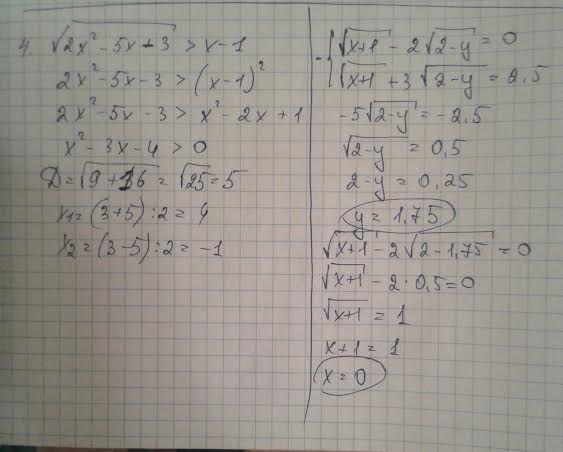 4. √(2x² - 5x - 3) > x - 1
2x² - 5x - 3 > (x - 1)²
2x² - 5x - 3 > x² - 2x + 1
x² - 3x - 4 > 0
D = √(9 + 16) = √25 = 5
x₁ = (3+5) : 2 = 4
x₂ = (3-5) : 2 = -1
- { √(x+1) - 2√(2-y) = 0
√(x+1) + 3√(2-y) = 2,5
-5√(2-y) = -2,5
√(2-y) = 0,5
2-y = 0,25
y = 1,75
√(x+1) - 2√(2-1,75) = 0
√(x+1) - 2 · 0,5 = 0
√(x+1) = 1
x+1 = 1
x = 0